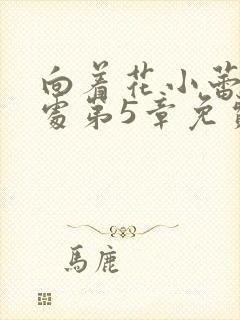 向着花小蕾
处第5章免费
馬鹿